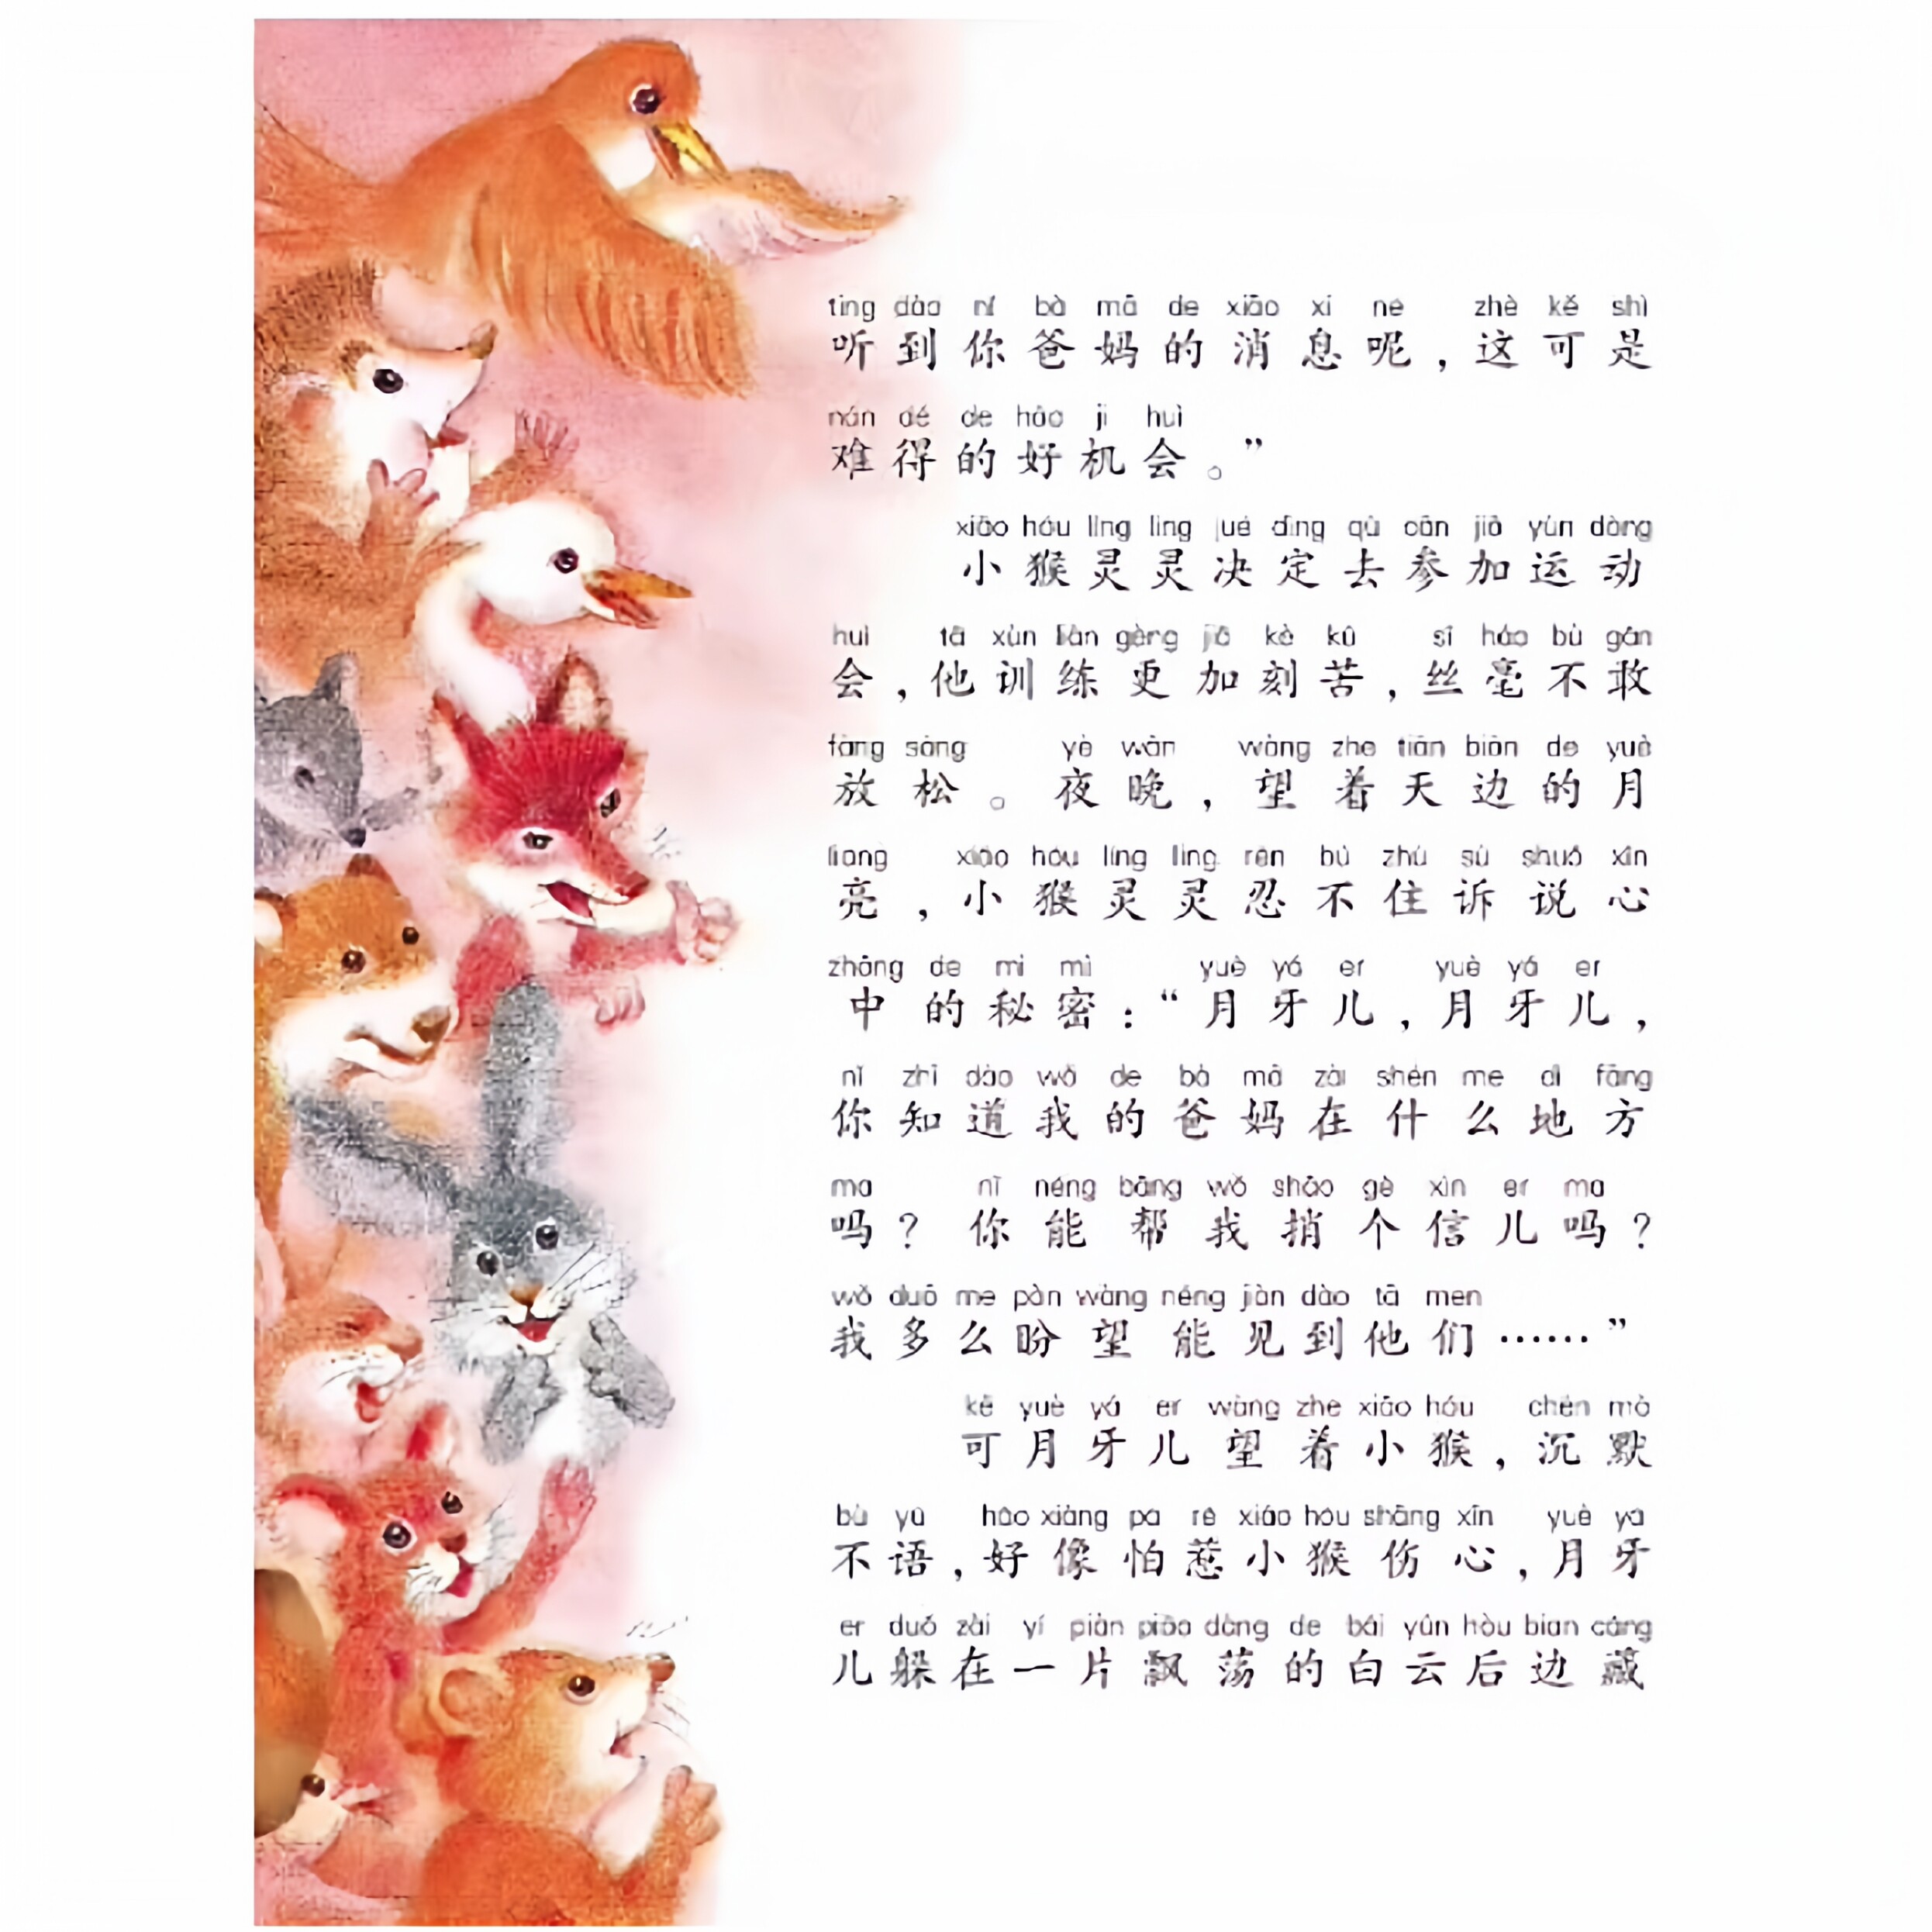 tīng dào nǐ bà mā de xiāo xi ne zhè kě shì
听到你爸妈的消息呢，这可是
nán dé de hǎo jī huì
难得的好机会。”
xiǎo hóu líng ling jué dìng qù cān jiā yùn dòng
小猴灵灵决定去参加运动
huì tā xùn liàn gèng jiā kè kǔ sī háo bù gǎn
会，他训练更加刻苦，丝毫不敢
fàng sōng yè wǎn wàng zhe tiān biān de yuè
放松。夜晚，望着天边的月
liang xiǎo hóu líng ling rěn bú zhù sù shuō xīn
亮，小猴灵灵忍不住诉说心
zhōng de mì mì yuè yá er yuè yá er
中的秘密：“月牙儿，月牙儿，
nǐ zhī dào wǒ de bà mā zài shén me dì fāng
你知道我的爸妈在什么地方
ma nǐ néng bāng wǒ shāo gè xìn er ma
吗？你能帮我捎个信儿吗？
wǒ duō me pàn wàng néng jiàn dào tā men
我多么盼望能见到他们……”
kě yuè yá er wàng zhe xiǎo hóu chén mò
可月牙儿望着小猴，沉默
bù yǔ hǎo xiàng pà rě xiǎo hóu shāng xīn yuè yá
不语，好像怕惹小猴伤心，月牙
er duǒ zài yí piàn piāo dàng de bái yún hòu bian cáng
儿躲在一片飘荡的白云后边藏